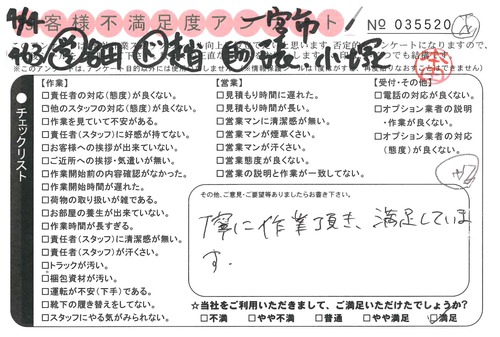 お客様不満足度アンケート
No 035520
一宮市
小塚
チェックリスト
【作業】
□責任者の対応(態度)が良くない。
□他のスタッフの対応(態度)が良くない。
□作業を見ていて不安がある。
□責任者(スタッフ)に好感が持てない。
□お客様への挨拶が出来ていない。
□ご近所への挨拶・気遣いが無い。
□作業開始前の内容確認がなかった。
□作業開始時間が遅れた。
□荷物の取り扱いが雑である。
□お部屋の養生が出来ていない。
□作業時間が長すぎる。
□責任者(スタッフ)に清潔感が無い。
□責任者(スタッフ)が汗くさい。
□トラックが汚い。
□梱包資材が汚い。
□運転が不安(下手)である。
□靴下の履き替えをしてない。
□スタッフにやる気がみられない。
【営業】
□見積もり時間に遅れた。
□見積もり時間が長い。
□営業マンに清潔感が無い。
□営業マンが煙草くさい。
□営業マンが汗くさい。
□営業態度が良くない。
□営業の説明と作業が一致してない。
【受付・その他】
□電話の対応が良くない。
□オプション業者の説明
・作業が良くない。
□オプション業者の対応
(態度)が良くない。
その他、ご意見・ご要望等ありましたらお書き下さい。
寧に作業頂き、満足していま
す.
☆当社をご利用いただきまして、ご満足いただけたでしょうか?
□不満 □やや不満 □普通 □やや満足 □満足